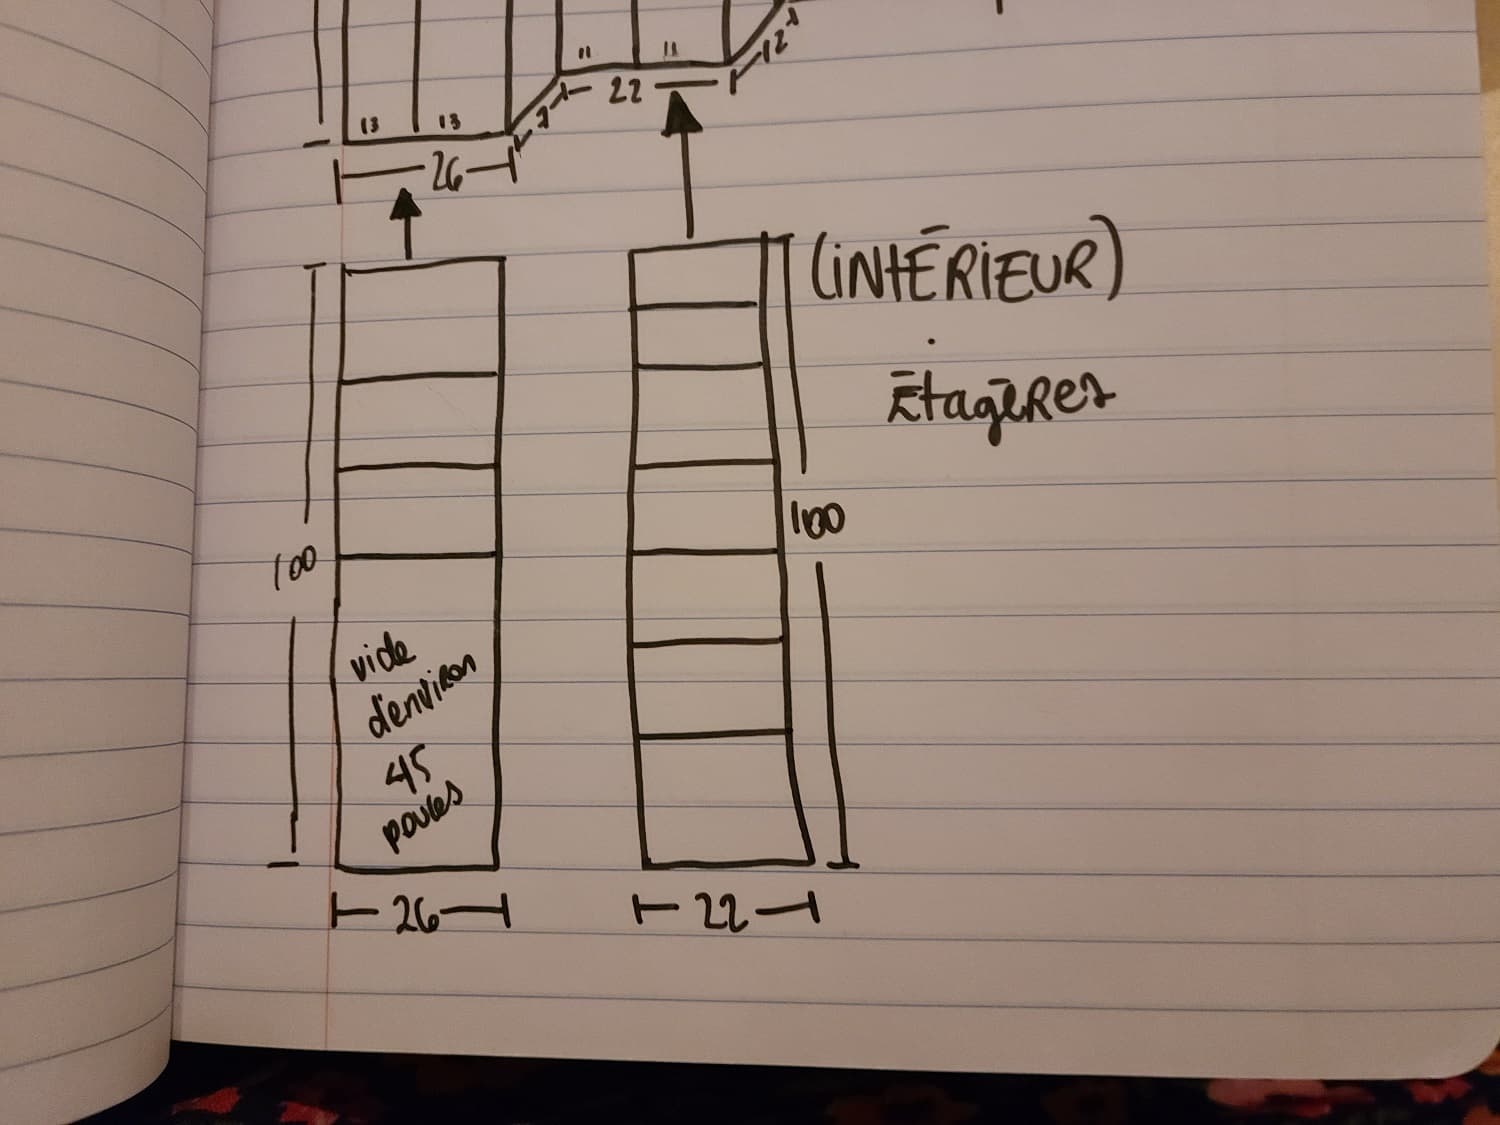 11 11
12
22
7
13 13
26
(INTÉRIEUR)
Étagères
100
100
vide
d'environ
45
pouces
26
22